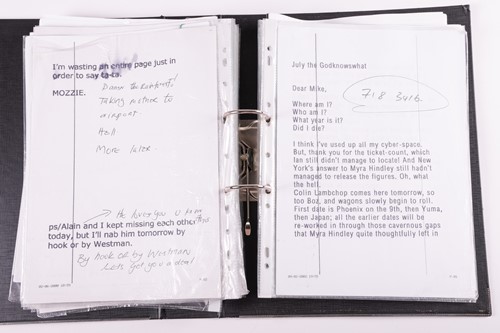 I'm wasting an entire page just in
order to say ta-ta.
MOZZIE.
Damn the Rainforest!
Taking mother to
airport.
Hell
More later.
He loves you
ps/Alain and I kept missing each other
today, but I'll nab him tomorrow by
hook or by Westman.
By hook or by Westman
can get you a deal
July the Godknowswhat
Dear Mike,
718 3416
Where am I?
Who am I?
What year is it?
Did I die?
I think I've used up all my cyber-space.
But, thank you for the ticket-count, which
Ian still didn't manage to locate! And New
York's answer to Myra Hindley still hadn't
managed to release the figures. Oh, what
the hell.
Colin Lambchop comes here tomorrow, so
too Boz, and wagons slowly begin to roll.
First date is Phoenix on the 9th, then Yuma,
then Japan; all the earlier dates will be
re-worked in through those cavernous gaps
that Myra Hindley quite thoughtfully left in